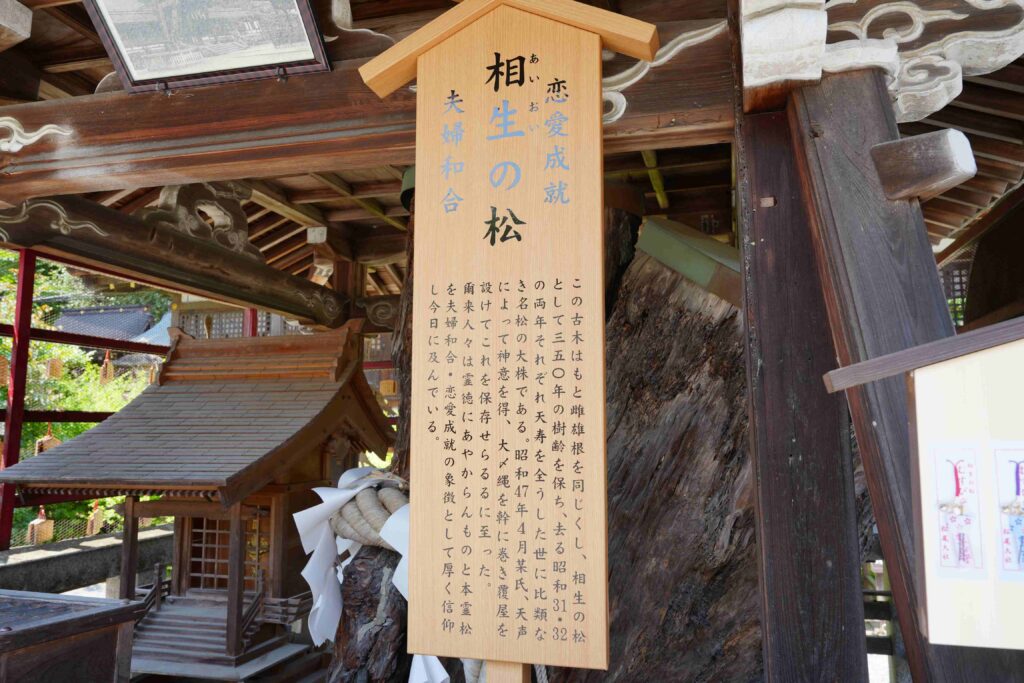 恋愛成就
相生の松
あいおい
夫婦和合
この古木はもと雌雄根を同じくし、相生の松
として三五〇年の樹齢を保ち、去る昭和31・32
の両年それぞれ天寿を全うした世に比類な
き名松の大株である。昭和47年4月某氏、天声
によって神意を得、大〆縄を幹に巻き覆屋を
設けてこれを保存せらるるに至った。
爾来人々は霊徳にあやからんものと本霊松
を夫婦和合・恋愛成就の象徴として厚く信仰
し今日に及んでいる。
松尾大社